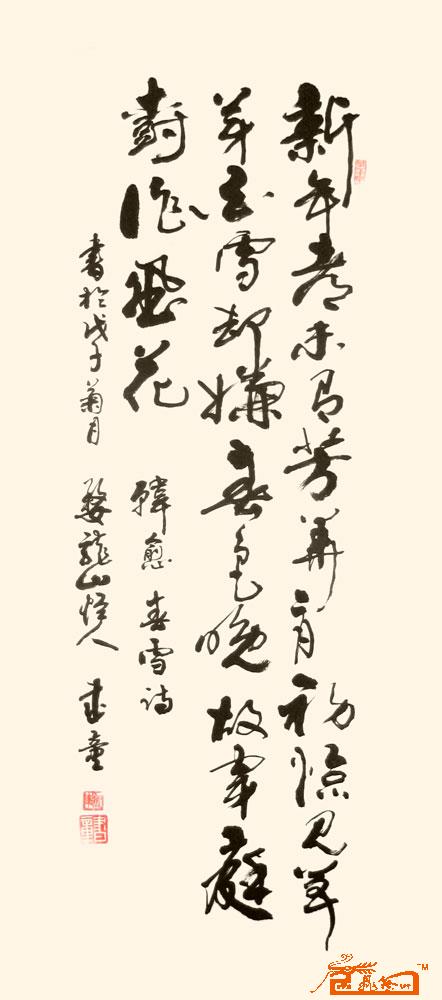 新年都未有芳華二月初惊見草
芽白雪却嫌春色晚故穿庭
樹作飛花
韓愈春雪詩
書於戊子菊月 龍山怪人 童